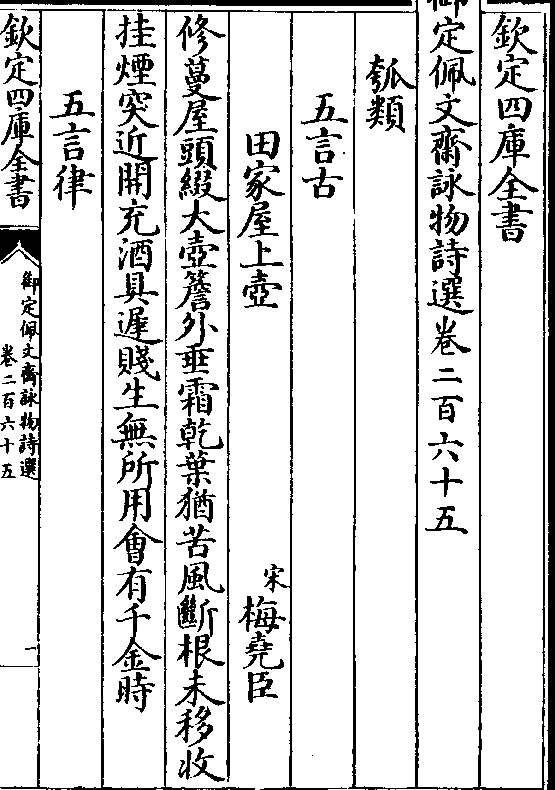 欽定四庫全書
御定佩文齋詠物詩選卷二百六十五
瓠類
五言古
田家屋上壺
宋梅堯臣
修蔓屋頭綴大壺簷外垂霜乾葉猶苦風斷根未移收
挂煙突近開充酒具遲賤生無所用會有千金時
五言律
欽定四庫全書
御定佩文齋詠物詩選
卷二百六十五
一